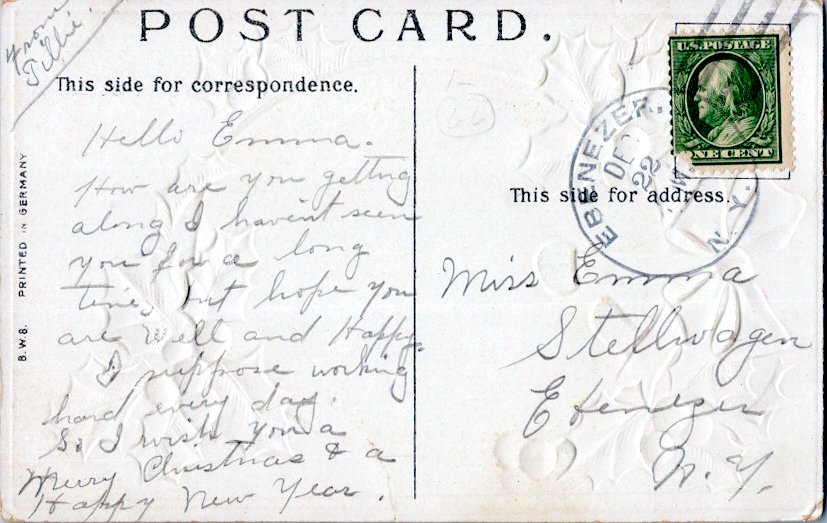 From
Tillie.
POST CARD.
This side for correspondence.
Hello Emma.
How are you getting
along I havent seen
you for a long
time, but hope you
are well and Happy.
I suppose working
hard every day.
So I wish you a
Merry Christmas & a
Happy New Year.
B.W.8. PRINTED IN GERMANY
66
U.S. POSTAGE
ONE CENT
EBENEZER.
N.Y.
DEC
22
This side for address.
Miss Emma
Stellwagen
Ebenezer
N.Y.